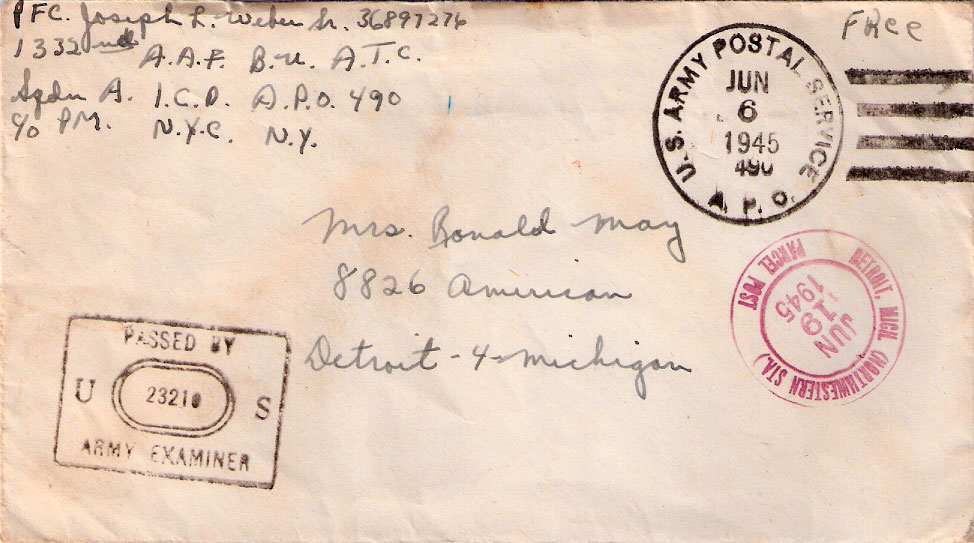 PFC. Joseph L. Weber Sr. 36897276
1332nd A.A.F. B.U. A.T.C.
Sqdn A. I.C.D. A.P.O. 490
c/o PM. N.Y.C. N.Y.
Free
U.S. ARMY POSTAL SERVICE
JUN
6
1945
490
A.P.O.
Mrs. Ronald May
8826 American
Detroit-4-Michigan
DETROIT, MICH. (NORTHWESTERN STA.)
PARCEL POST
JUN
19
1945
PASSED BY
U 23210 S
ARMY EXAMINER